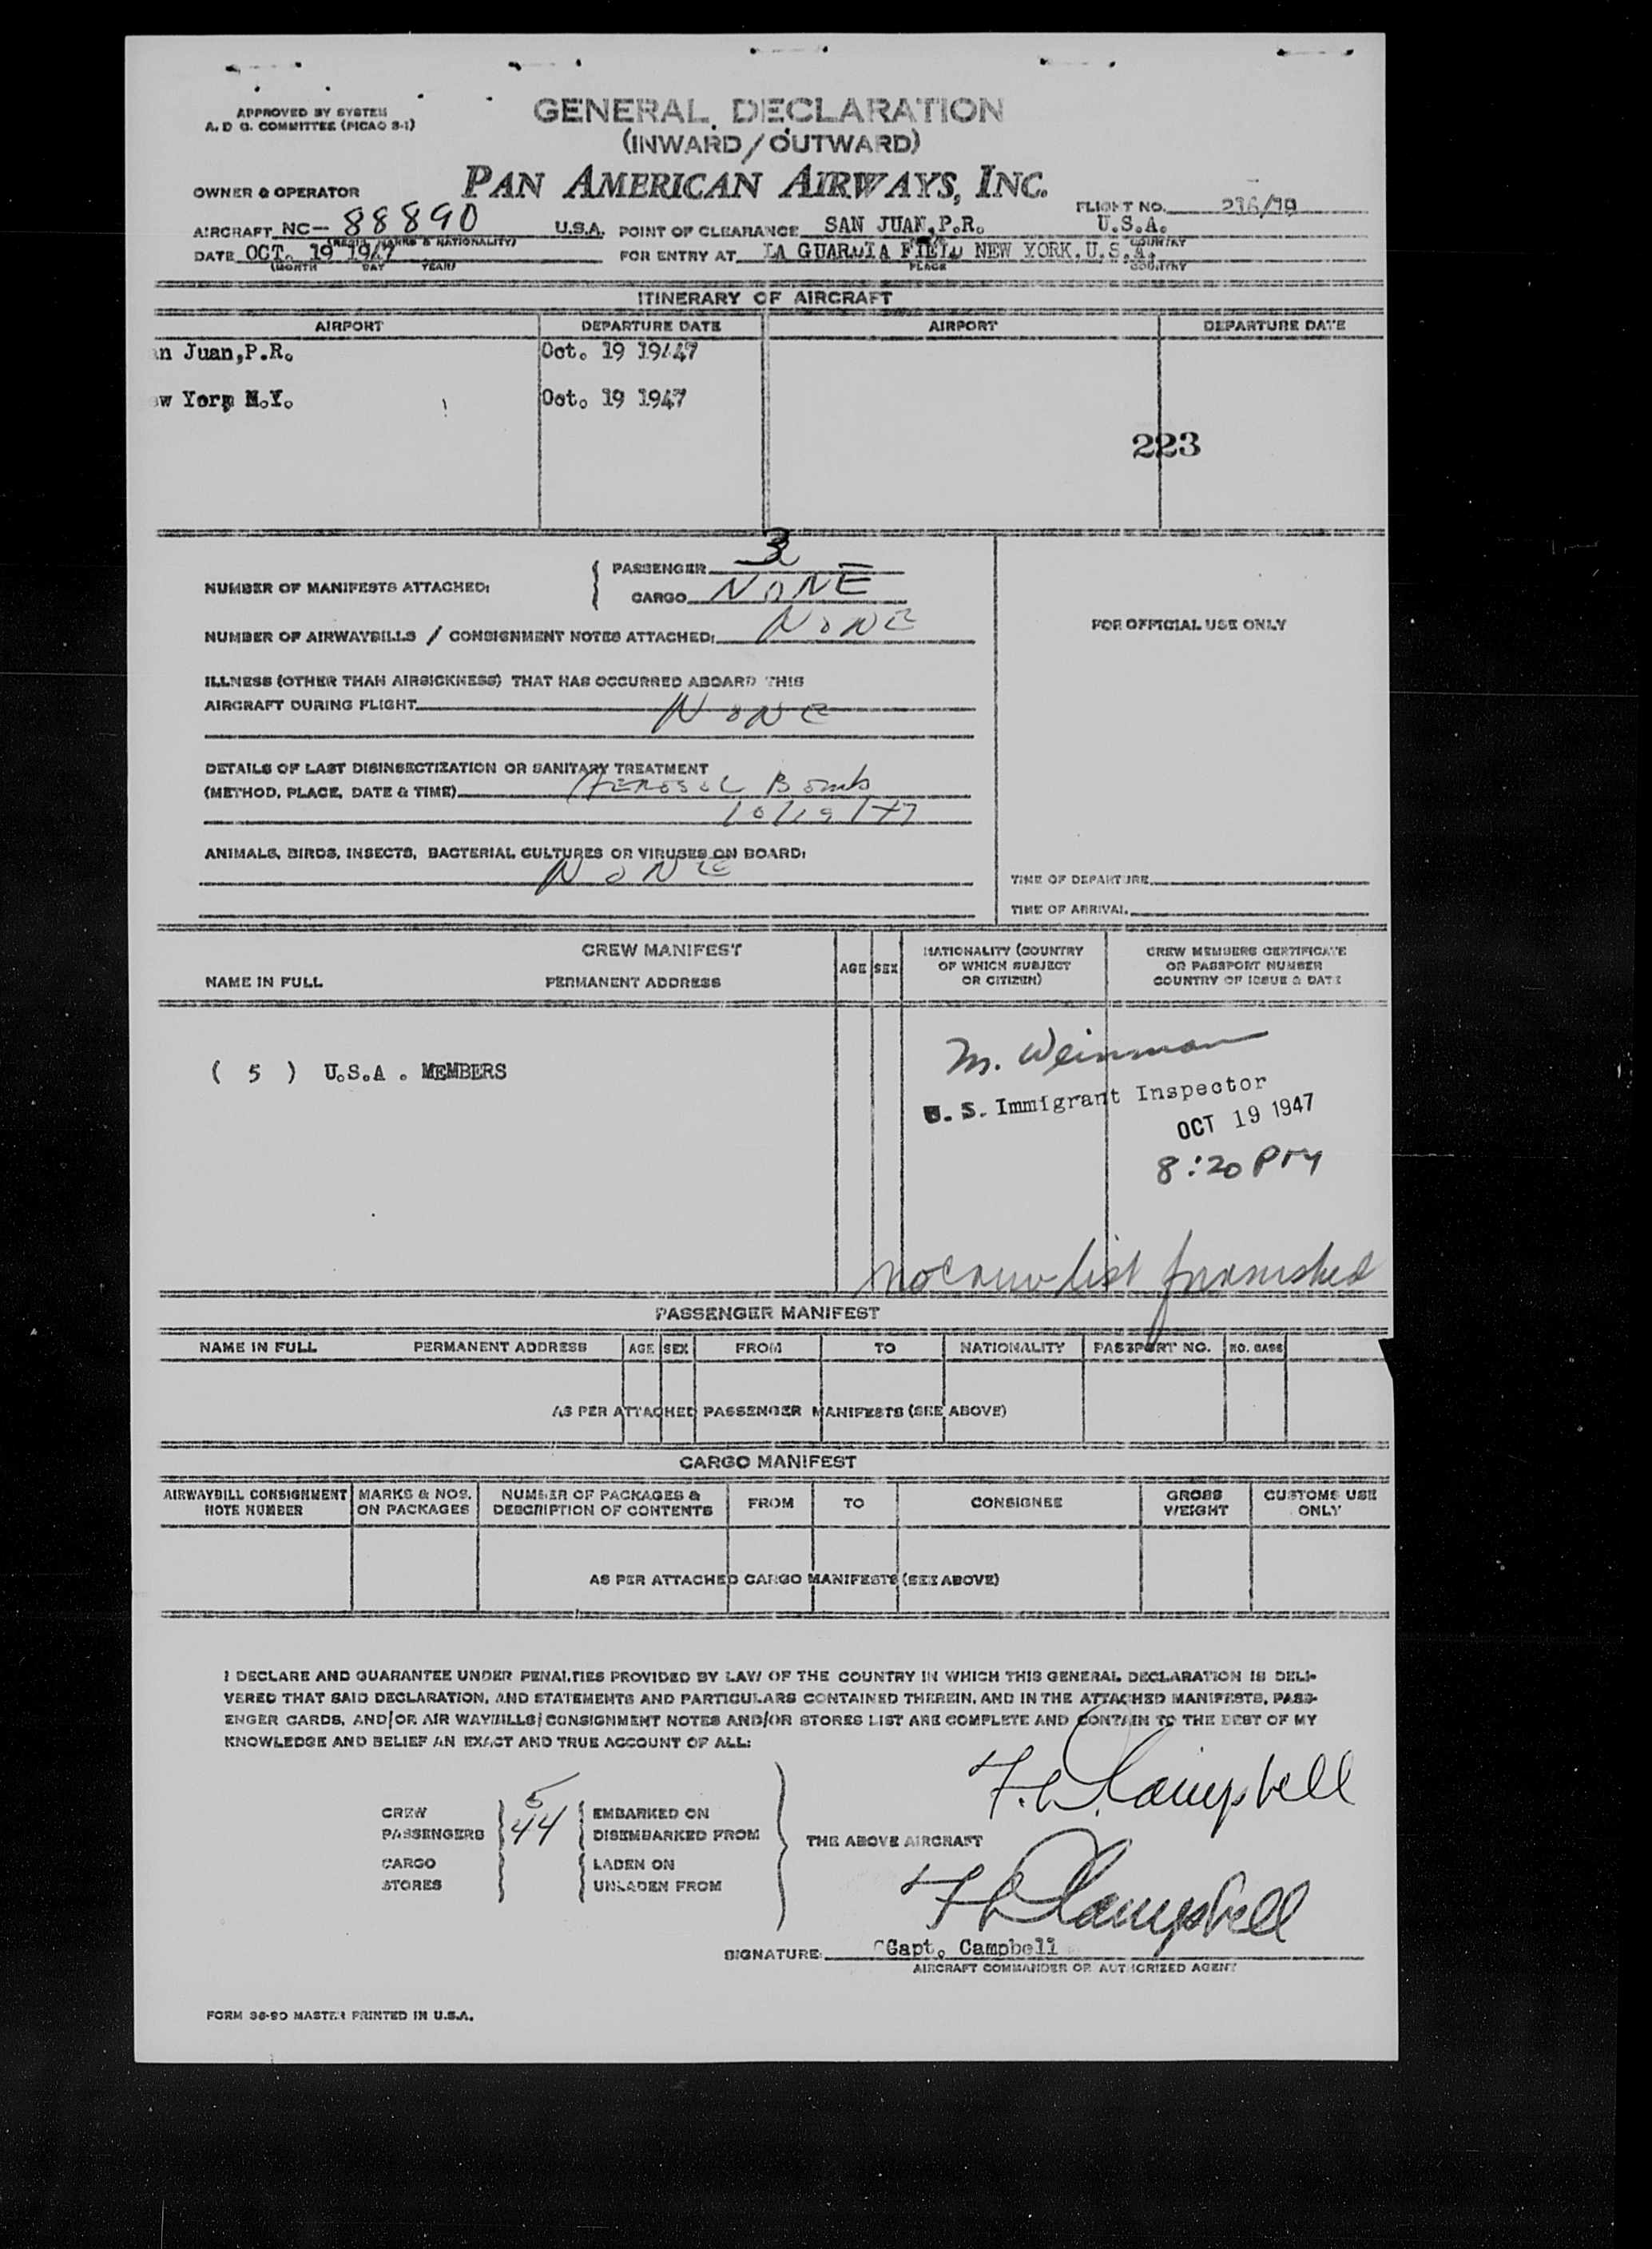 APPROVED BY SYSTEM
A. D G. COMMITTEE (PICAO S-1)
GENERAL DECLARATION
(INWARD/OUTWARD)
OWNER & OPERATOR PAN AMERICAN AIRWAYS, INC.
FLIGHT NO. 236/19
AIRCRAFT NC- 88890 U.S.A. POINT OF CLEARANCE SAN JUAN, P.R. U.S.A.
(REGIS. MARKS & NATIONALITY) COUNTRY
DATE OCT. 19 1947 FOR ENTRY AT LA GUARDIA FIELD NEW YORK. U.S.A.
(MONTH DAY YEAR) PLACE COUNTRY
ITINERARY OF AIRCRAFT
AIRPORT DEPARTURE DATE AIRPORT DEPARTURE DATE
an Juan,P.R. Oct. 19 19447
ew Yorp N.Y. Oct. 19 1947
223
NUMBER OF MANIFESTS ATTACHED: { PASSENGER 3
CARGO NONE
NUMBER OF AIRWAYBILLS / CONSIGNMENT NOTES ATTACHED: NONE
FOR OFFICIAL USE ONLY
ILLNESS (OTHER THAN AIRSICKNESS) THAT HAS OCCURRED ABOARD THIS
AIRCRAFT DURING FLIGHT NONE
DETAILS OF LAST DISINSECTIZATION OR SANITARY TREATMENT
(METHOD, PLACE, DATE & TIME) AEROSOL Bomb
10/19/47
ANIMALS, BIRDS, INSECTS, BACTERIAL CULTURES OR VIRUSES ON BOARD:
NONE
TIME OF DEPARTURE
TIME OF ARRIVAL
CREW MANIFEST
NAME IN FULL PERMANENT ADDRESS AGE SEX
NATIONALITY (COUNTRY
OF WHICH SUBJECT
OR CITIZEN)
CREW MEMBERS CERTIFICATE
OR PASSPORT NUMBER
COUNTRY OF ISSUE & DATE
( 5 ) U.S.A . MEMBERS
M. Weinman
U. S. Immigrant Inspector
OCT 19 1947
8:20 PM
no crew list furnished
PASSENGER MANIFEST
NAME IN FULL PERMANENT ADDRESS AGE SEX FROM TO NATIONALITY PASSPORT NO. NO. BAGS
AS PER ATTACHED PASSENGER MANIFESTS (SEE ABOVE)
CARGO MANIFEST
AIRWAYBILL CONSIGNMENT
NOTE NUMBER
MARKS & NOS.
ON PACKAGES
NUMBER OF PACKAGES &
DESCRIPTION OF CONTENTS
FROM TO CONSIGNEE
GROSS
WEIGHT
CUSTOMS USE
ONLY
AS PER ATTACHED CARGO MANIFESTS (SEE ABOVE)
I DECLARE AND GUARANTEE UNDER PENALTIES PROVIDED BY LAW OF THE COUNTRY IN WHICH THIS GENERAL DECLARATION IS DELI-
VERED THAT SAID DECLARATION, AND STATEMENTS AND PARTICULARS CONTAINED THEREIN, AND IN THE ATTACHED MANIFESTS, PASS-
ENGER CARDS, AND/OR AIR WAYBILLS/CONSIGNMENT NOTES AND/OR STORES LIST ARE COMPLETE AND CONTAIN TO THE BEST OF MY
KNOWLEDGE AND BELIEF AN EXACT AND TRUE ACCOUNT OF ALL:
CREW 5 EMBARKED ON
PASSENGERS 44 DISEMBARKED FROM
CARGO LADEN ON
STORES UNLADEN FROM
THE ABOVE AIRCRAFT
F. D. Campbell
F D Campbell
SIGNATURE: Capt. Campbell
AIRCRAFT COMMANDER OR AUTHORIZED AGENT
FORM 36-90 MASTER PRINTED IN U.S.A.